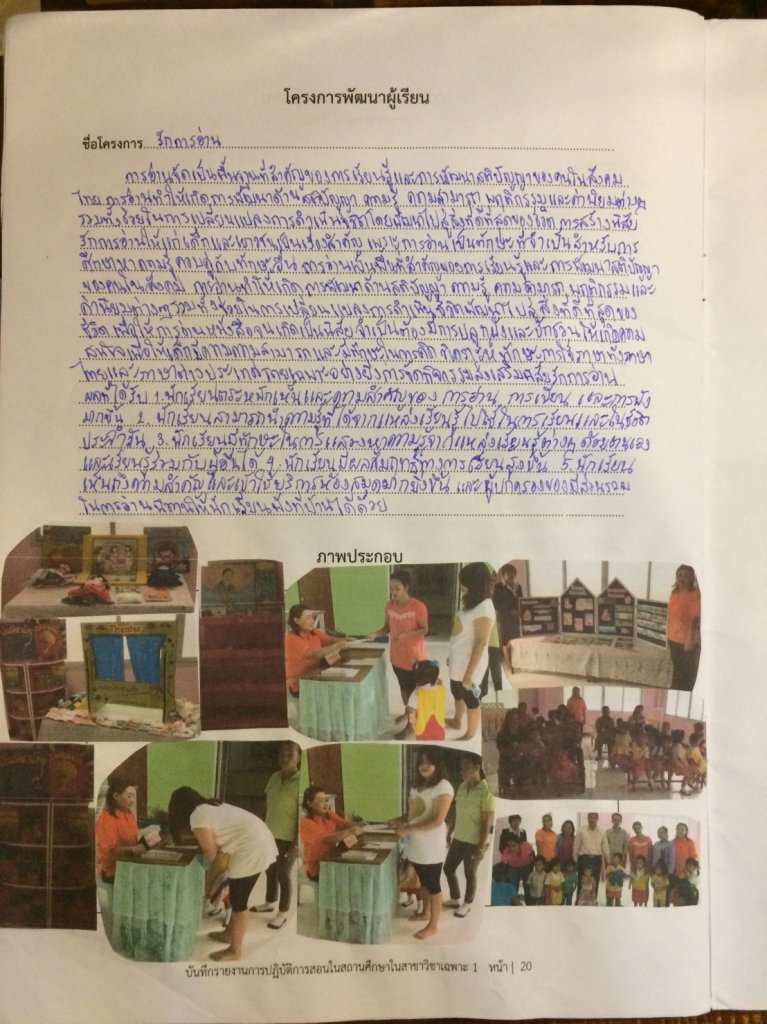 โครงการพัฒนาผู้เรียน
ชื่อโครงการ รักการอ่าน
การอ่านจัดเป็นพื้นฐานที่สำคัญของการเรียนรู้และการพัฒนาสติปัญญาของคนในสังคม
ไทย การอ่านทำให้เกิดการพัฒนาด้านสติปัญญา ความรู้ ความสามารถ พฤติกรรมและค่านิยมต่างๆ
รวมทั้งช่วยในการเปลี่ยนแปลงการดำเนินชีวิตโดยพัฒนาไปสู่สิ่งที่ดีที่สุดของชีวิต การสร้างนิสัย
รักการอ่านให้แก่เด็กและเยาวชนเป็นเรื่องสำคัญ เพราะการอ่านเป็นทักษะที่จำเป็นสำหรับการ
ศึกษาหาความรู้ ควบคู่กับทักษะอื่น การอ่านเป็นพื้นที่สำคัญของการเรียนรู้และ การพัฒนาสติปัญญา
ของคนในสังคม การอ่านทำให้เกิด การพัฒนาด้านสติปัญญา ความรู้ ความสามารถ พฤติกรรมและ
ค่านิยมต่างๆ ช่วยในการเปลี่ยนแปลงการดำเนินชีวิตพัฒนาไปสู่สิ่งที่ดีที่สุดของ
ชีวิต เพื่อให้การอ่านหนังสือจนเกิดเป็นนิสัย จำเป็นต้องมีการปลูกฝังและชักชวนให้เกิดความ
สนใจเพื่อให้เด็กรักความสามารถและมีทักษะในการคิด วิเคราะห์ ทักษะการใช้ภาษาทั้งภาษา
ไทยและภาษาต่างประเทศโดยเฉพาะอย่างยิ่งการจัดกิจกรรมส่งเสริมนิสัยรักการอ่าน
ผลที่ได้รับ 1. นักเรียนตระหนักเห็นและความสำคัญของ การอ่าน การเขียน และการฟัง
มากขึ้น 2. นักเรียนสามารถนำความรู้ที่ได้จากแหล่งเรียนรู้ไปใช้ในการเรียนและในชีวิต
ประจำวัน 3. นักเรียนมีทักษะในการแสวงหาความรู้จากแหล่งเรียนรู้ต่างๆ ด้วยตนเอง
และเรียนรู้ร่วมกับผู้อื่นได้ 4. นักเรียนมีผลสัมฤทธิ์ทางการเรียนสูงขึ้น 5. นักเรียน
เห็นถึงความสำคัญและเข้าใช้บริการห้องสมุดมากยิ่งขึ้น และผู้ปกครองของมีส่วนร่วม
ในการอ่านนิทานให้นักเรียนฟังที่บ้านได้ด้วย
ภาพประกอบ
Theater
บันทึกรายงานการปฏิบัติการสอนในสถานศึกษาในสาขาวิชาเฉพาะ 1 หน้า | 20